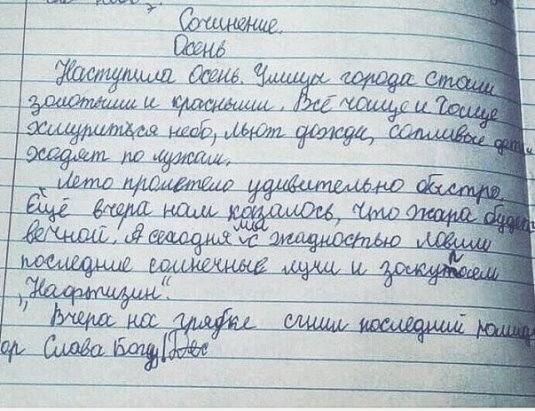 Сочинение.
Осень
Наступила Осень. Улицы города стали
золотыми и красными. Всё чаще и больше
хмуриться небо, льют дожди, сопливые дети
ходят по лужам.
Лето пролетело удивительно быстро.
Ещё вчера нам казалось, что жара будет
вечной. А сегодня мы с жадностью ловим
последние солнечные лучи и закупаем
„Нафтизин“.
Вчера на грядке сгнил последний помид
ор Слава Богу!